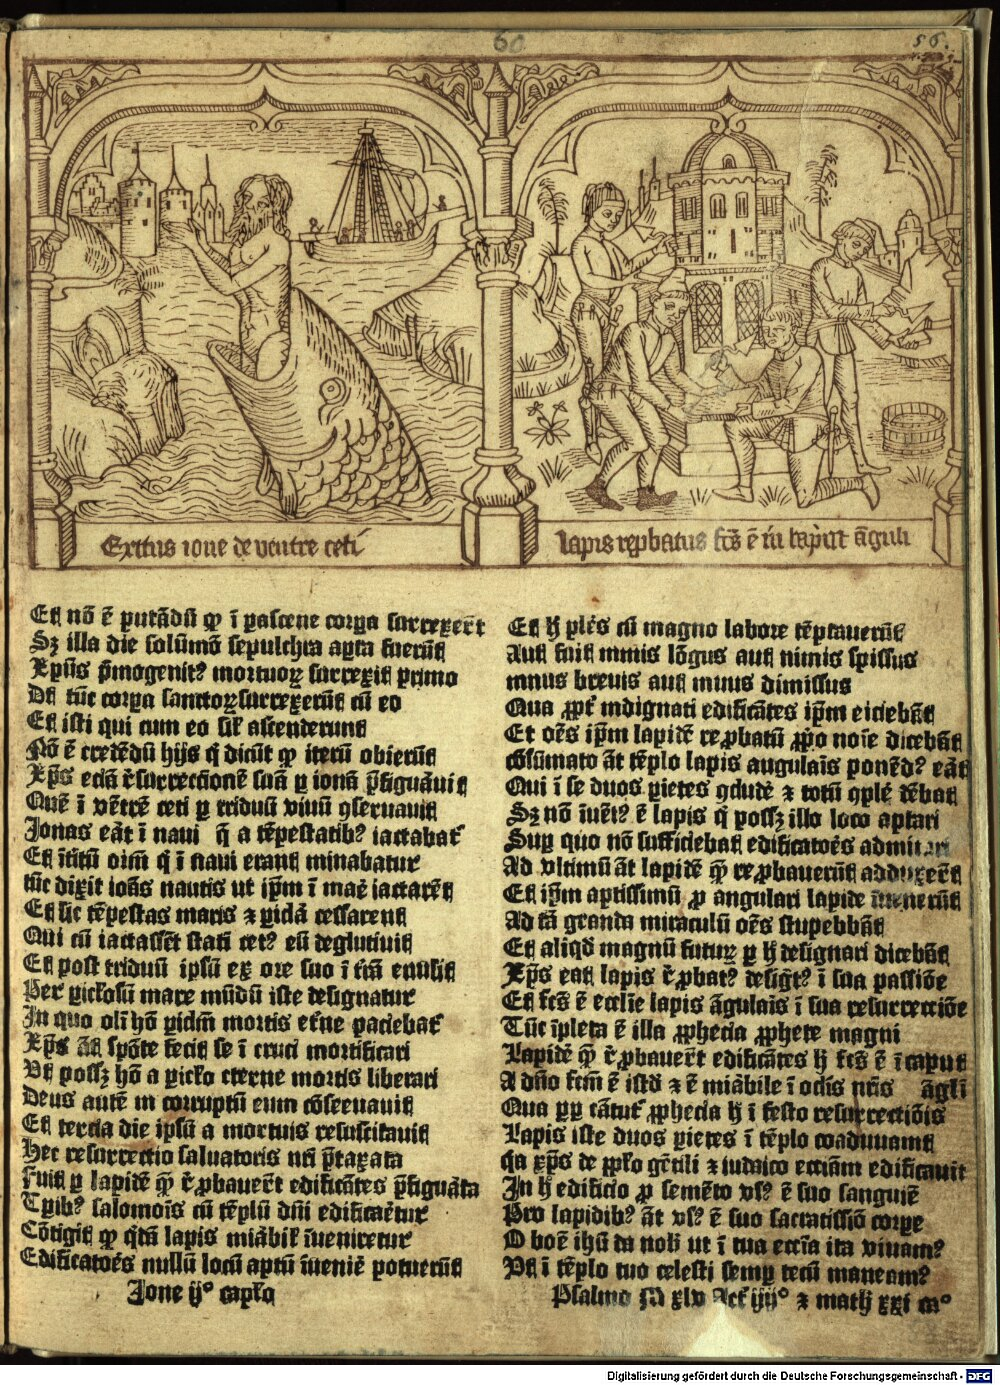 60
56.
Exitus ione de ventre ceti
lapis rep̱batus fc̄s ē in caput āguli
Et nō ē putādū qɔ ī pascene corꝑa surrexer̄t
Sꝫ illa die solūmō sepulchra aꝑta fuerūt
Xp̄us p̄mogenitꝰ mortuoꝝ surrexit primo
Et tūc corꝑa sanctoꝝ surrexerūt cū eo
Et isti qui cum eo sil̄ ascenderunt
Nō ē credēdū hijs q̄ dicūt qɔ iterū obierūt
Xp̄s eciā r̄surrectionē suā ꝑ ionā p̄figuāuit
Quē ī vētrē ceti ꝑ triduū viuū ɔseruauit
Jonas eāt ī naui q̄ a tēpestatibꝰ iactabat᷑
Et ītitū oim̄ q̄ ī naui erant minabatur
tūc dixit ioās nautis ut ip̄m ī maē iactarēt
Et sic tēpestas maris ⁊ ꝑidā cessarent
Qui cū iactassēt stati cetꝰ eū deglutiuit
Et post triduū ipsū ex ore suo ī t̄rā emisit
Per ꝑicl̄osū mare mūdū iste designatur
In quo oli hō ꝑidm̄ mortis et̄ne paciebat᷑
Xp̄s āt spōte fecit se ī cruci mortificari
Vt possꝫ hō a ꝑicl̄o eterne mortis liberari
Deus autē in corruptū eum cōseruauit
Et tercia die ipsū a mortuis resuscitauit
Hec resurrectio saluatoris nr̄i p̄taxata
Fuit ꝑ lapidē q̄ɜ r̄ꝓbauer̄t edificātes p̄figuāta
Tꝑibꝰ salomoīs cū tēplū dn̄i edificaētur
Cōtigit qɔ q̄dā lapis miābil̄ īueniretur
Edificatoēs nullū locū aptū īueniē potuerūt
Ione ijº capl̄o
Et h̄ ꝑlēs cū magno labore tēptauerūt
Aut fuit nimis lōgus aut nimis spissus
minus breuis aut minus dimissus
Qua ꝓpt᷑ indignati edificātes ip̄m eiciebāt
Et oēs ip̄m lapidē reꝓbatū ꝓpo noīe dicebāt
cōsūmato āt tēplo lapis angulaīs ponēdꝰ eāt
Qui ī se duos ꝑietes ɔcludē ⁊ totū ɔplē dēbat
Sꝫ nō īuētꝰ ē lapis q̄ possꝫ illo loco aptari
Suꝑ quo nō sufficiebāt edificatoēs admirari
Ad vltimū āt lapidē q̄ɜ reꝓbauerūt adduxer̄t
Et ip̄m aptissimū ꝓ angulari lapide īuenerūt
Ad tā granda miraculū oēs stupebbāt
Et aliqd̄ magnū futuꝝ ꝑ h̄ designari dicebāt
Xp̄s eāt lapis r̄ꝓbatꝰ desigt̄ꝰ ī sua passiōe
Et fc̄s ē eccl̄ie lapis āgulaīs ī sua resurrecciōe
Tūc īpleta ē illa ꝓphecia ꝓphete magni
Lapidē q̄ɜ r̄ꝓbauer̄t edificātes h̄ fc̄s ē ī caput
A dn̄o fcm̄ ē istd̄ ⁊ ē miābile ī oc̄lis nr̄is āgl̄i
Qua ꝓꝑ cātat᷑ ꝓphecia h̄ ī festo resurrectiōis
Lapis iste duos ꝑietes ī tēplo coadunauit
q̄a xp̄s de ꝓpl̄o gētili ⁊ iudaico eccīam edificauit
In h̄ edificio ꝓ semēto vsꝰ ē suo sanguīe
Pro lapidibꝰ āt vsꝰ ē suo sacratissiō corꝑe
O boē ih̄u da nob̄ ut ī tua ecc̄ia ita viuamꝰ
Vt ī tēplo tuo celesti semꝑ tecū maneamꝰ
Psalmo xlv Act᷑ iiijº ⁊ math̄ xxi cº
Digitalisierung gefördert durch die Deutsche Forschungsgemeinschaft - DFG